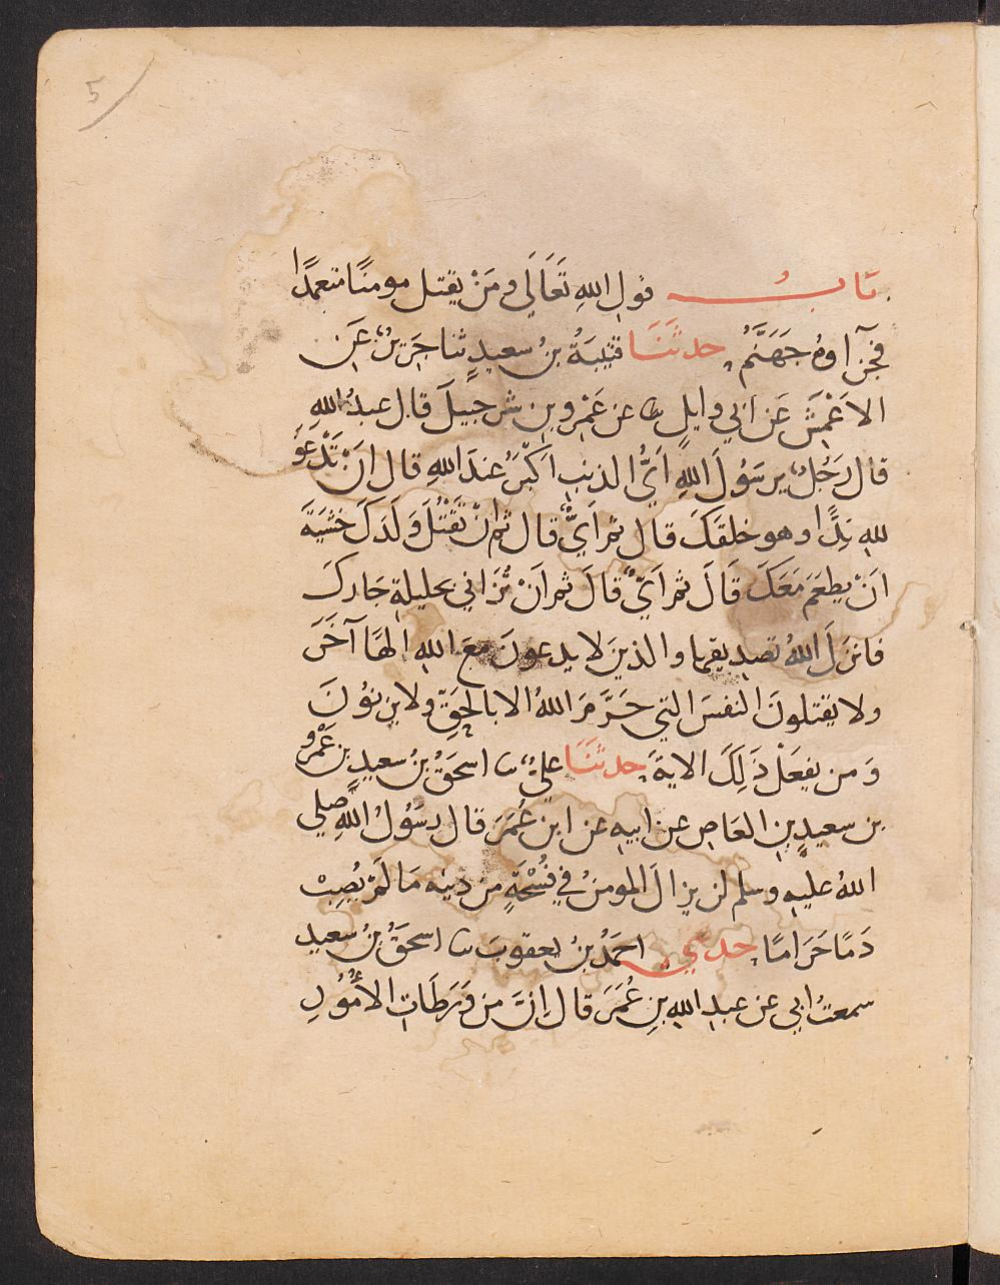 5
باب قول اللهِ تَعَالَى ومَنْ يقتل مومنًا متعمدًا
فجزآوهُ جَهَنَّمُ حدثَنَا قتيبَةُ بنُ سعيدٍ ثنا جَرِيرٌ عَنِ
الاَعْمَشِ عَن ابي وايلٍ ثنا عن عَمْرِو بنِ شرحبيلَ قال عبدُ اللهِ
قال رَجُلٌ يرسَوُلَ اللهِ اَيُّ الذنبِ اَكْبَرُ عندَ اللهِ قال اَنْ تَدْعُوَ
للهِ نِدًّا وهو خلقَكَ قال ثم اَيٌّ قال ثم اَنْ تَقْتُلَ وَلَدَكَ خَشْيَةَ
اَنْ يطعَمَ مَعَكَ قَالَ ثم اَيٌّ قَالَ ثم اَنْ تُزَاني بحليلةِ جَارِكَ
فانزَلَ اللهُ تصديقها والذينَ لا يدعونَ معَ اللهِ الهًا آخَرَ
ولا يقتلونَ النفسَ التي حَرَّمَ اللهُ الا بالحَقِّ ولا يزنوُنَ
وَمن يفعَلْ ذَلِكَ الايةَ حدثَنَا عليٌّ ثنا اسحَقُ بنُ سعيدِ بنِ عَمْرِو
بن سعيدِ بنِ العَاصِ عن ابيهِ عن ابنِ عُمَرَ قال رسَوُلُ اللهِ صلي
اللهُ عليهِ وسلم لن يزالَ المومنُ في فُسْحَةٍ من دينه مَا لَمْ يُصِبْ
دَمًا حَرَامًا حدثني احمَدُ بنُ يعقوبَ ثنا اسحقُ بنُ سعيدٍ
سمعتُ ابي عن عبدِ اللهِ بنِ عُمَرَ قال اِنَّ من وَرَطَاتِ الاُمُوُرِ